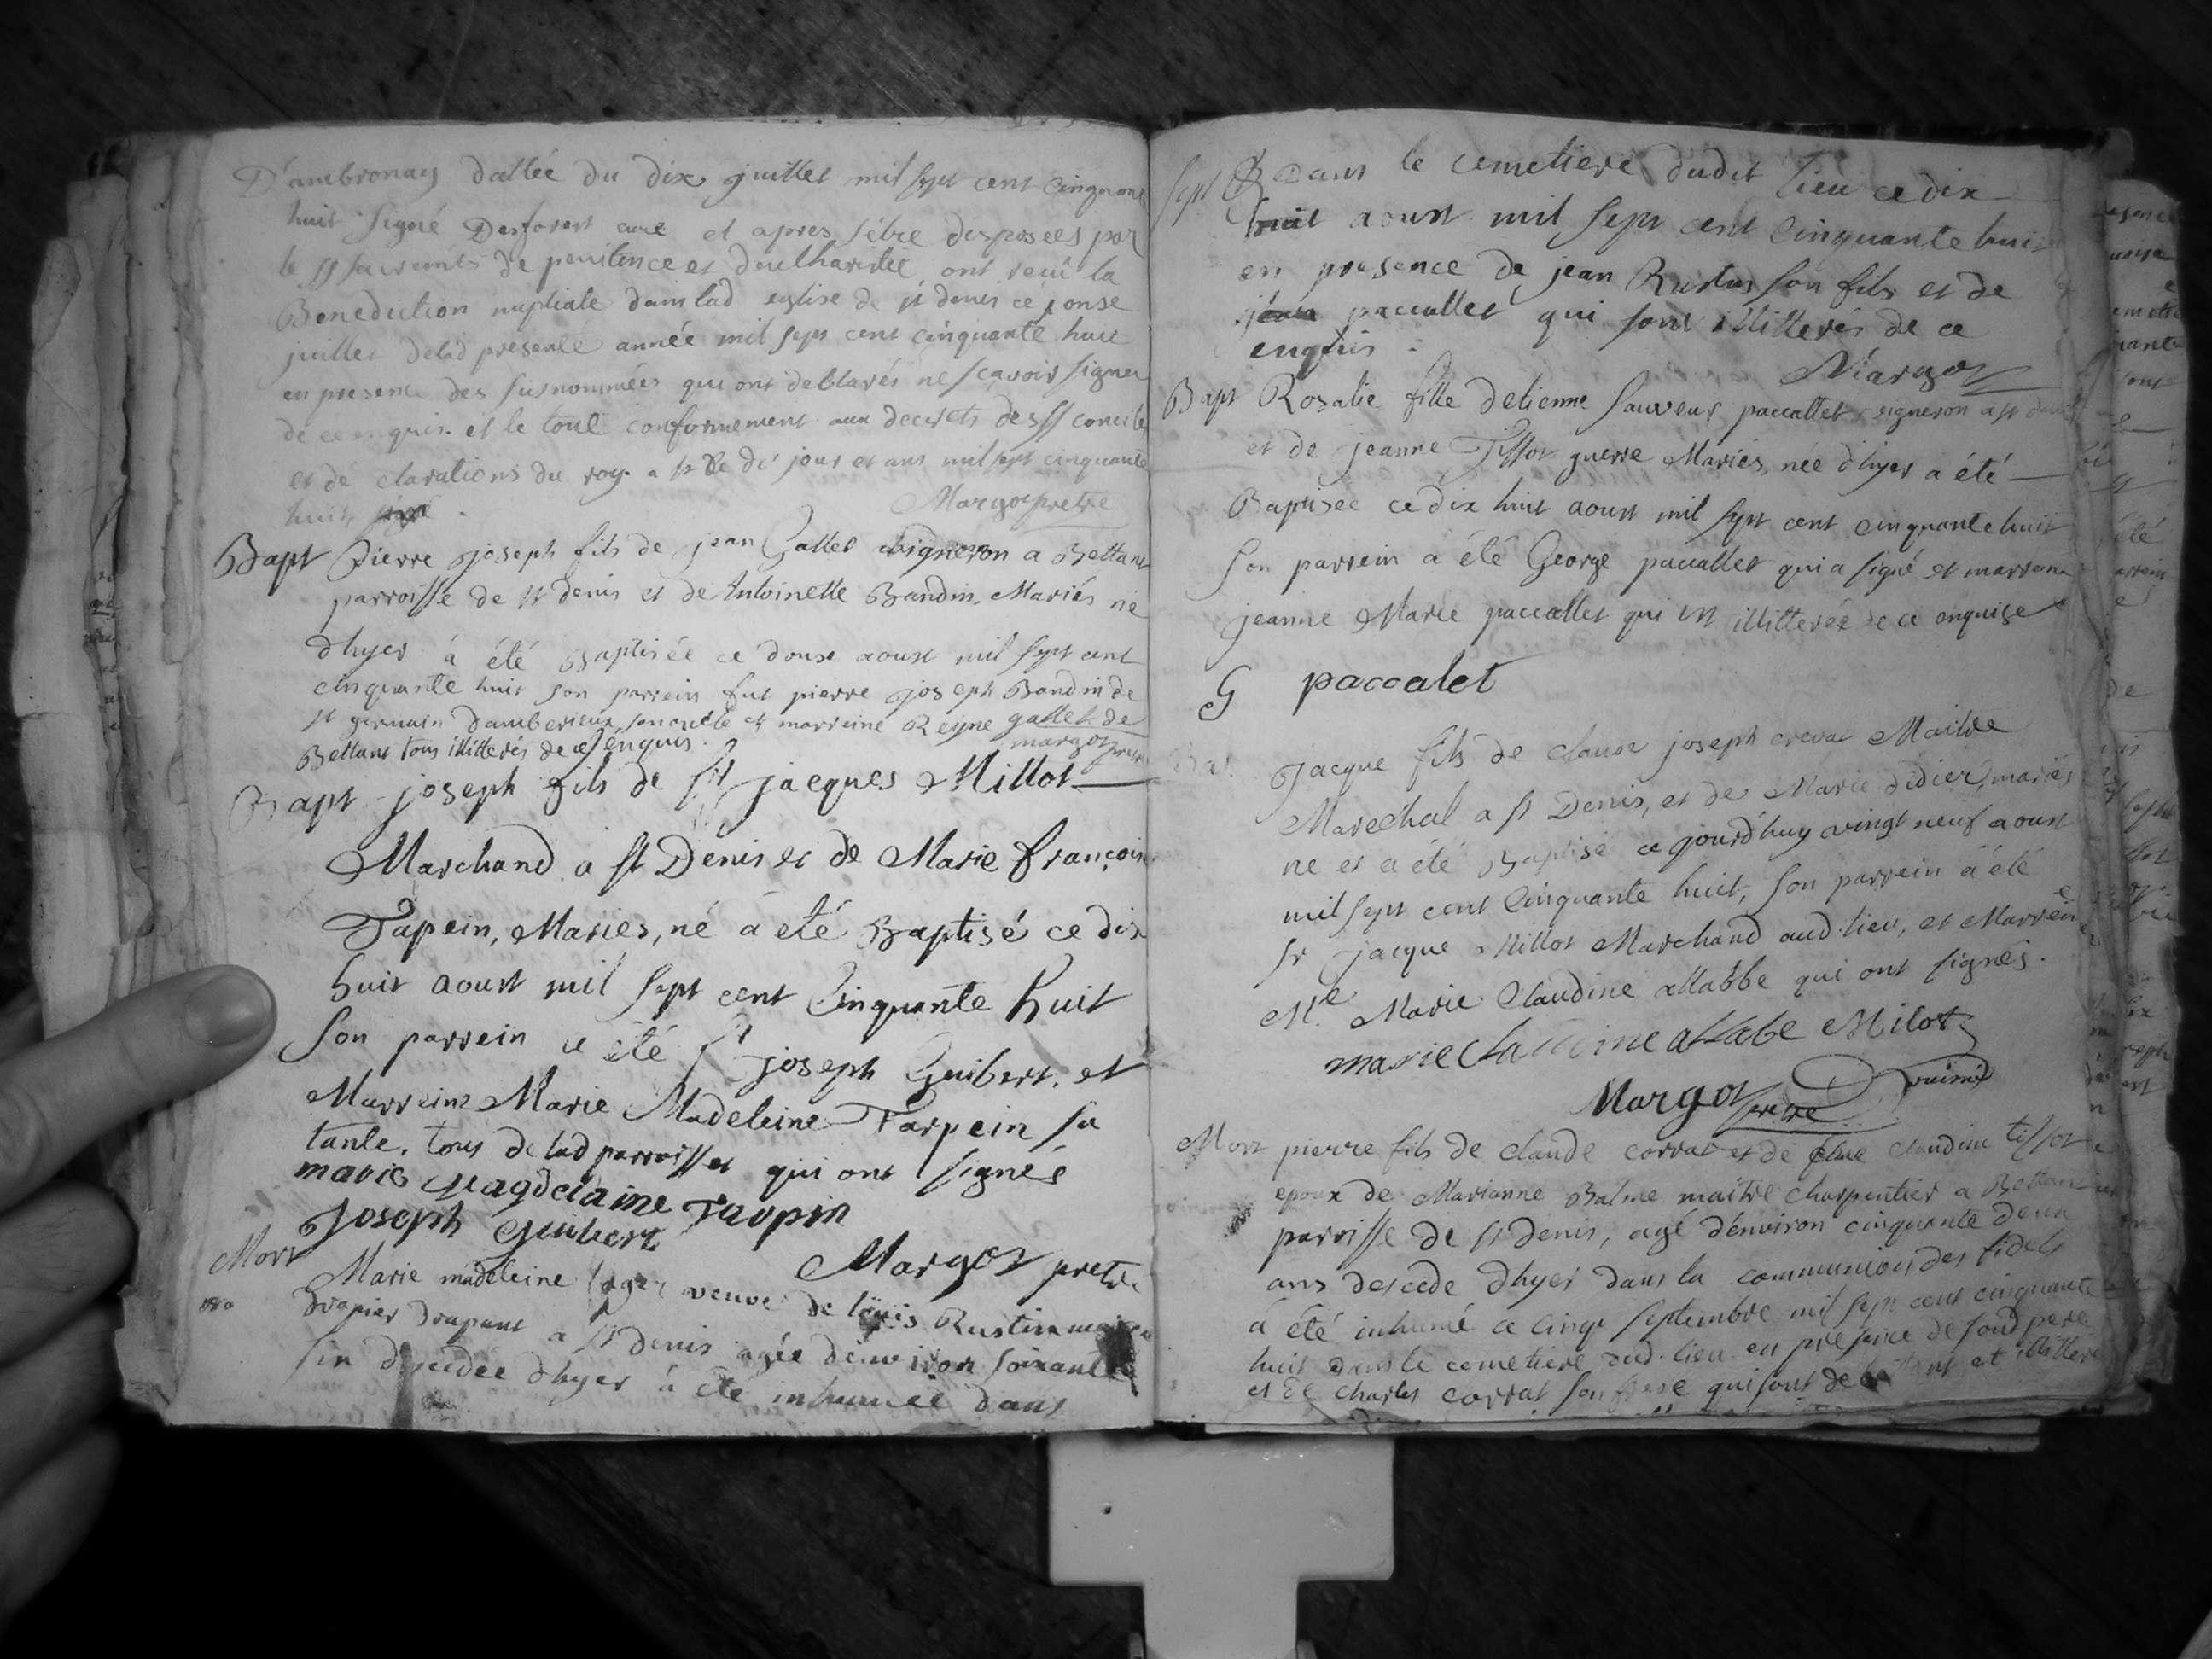 D'ambronay dattée du dix juillet mil sept cent cinquante
huit signé Desforest curé et apres s'etre disposees par
les SS sacrements de penitence et d'eucharistie ont recu la
Benediction nuptiale dans lad eglise de st denis ce onse
juillet delad presente année mil sept cent cinquante huit
en presence des susnommées qui ont declarés ne scavoir signer
de ce enquis et le tout conformement aux decrets des SS conciles
et declarations du roy a st De dit jour et ans mil sept cinquante
huit
Margot pretre
Bapt Pierre joseph fils de jean Gallet vigneron a Bettant
parroisse de st denis et de Antoinette Baudin, Mariés né
d'hyer a été Baptisée ce douse aoust mil sept cent
cinquante huit son parrein fut pierre joseph Baudin de
st germain d'amberieux, son oncle et marreine Reyne gallet de
Bettant tous illitterés de ce enquis.
margot pretre
Bapt joseph fils de sr jacques Millot
Marchand a st Denis et de Marie françoise
Tapein, Mariés, né a été Baptisé ce dix
huit aoust mil sept cent Cinquante huit
son parrein a été sr joseph Guibert, et
Marreine Marie Madeleine Tarpein sa
tante, tous de lad parroisse et qui ont signés
marie Magdelaine Taupin
Joseph Guibert
Margot pretre
Mort Marie madeleine veuve de louis Rustin
Drapier drapant a st Denis agée d'environ soixante
sin decedée d'hyer a été inhumée dans
sept Dans le cemetiere dudit lieu ce dix
huit aoust mil sept cent cinquante huit
en presence de jean Rustin son fils et de
paccallet qui sont illitterés de ce
enquis.
Margot
Bapt Rosalie fille d'etienne Sauveur paccallet vigneron a st denis
et de jeanne Tissot guerre Mariés, née d'hyer a été
Baptisée ce dix huit aoust mil sept cent cinquante huit
son parrein a été George paccallet qui a signé et marreine
jeanne Marie paccallet qui est illitterée de ce enquise
G paccalet
jacque fils de claude joseph crevat Maitre
Marechal a st Denis, et de Marie Didier, mariés
né et a été Baptisé ce jourd'huy vingt neuf aoust
mil sept cent Cinquante huit, son parrein a été
sr jacque Millot Marchand aud. lieu, et Marreine
Me Marie Claudine allabbe qui ont signés.
marie Claudine allabe Milot
Margot pretre
Mort pierre fils de claude corrat et de Claudine tissot
epoux de Marianne Balme maitre charpentier a Bettant
parroisse de st denis, agé d'environ cinquante deux
ans descede d'hyer dans la communion des fidels
a été inhumé ce cinq septembre mil sept cent cinquante
huit dans le cemetiere dud. lieu en presence de sond pere
et de charles corrat son frere qui sont de et illitterés